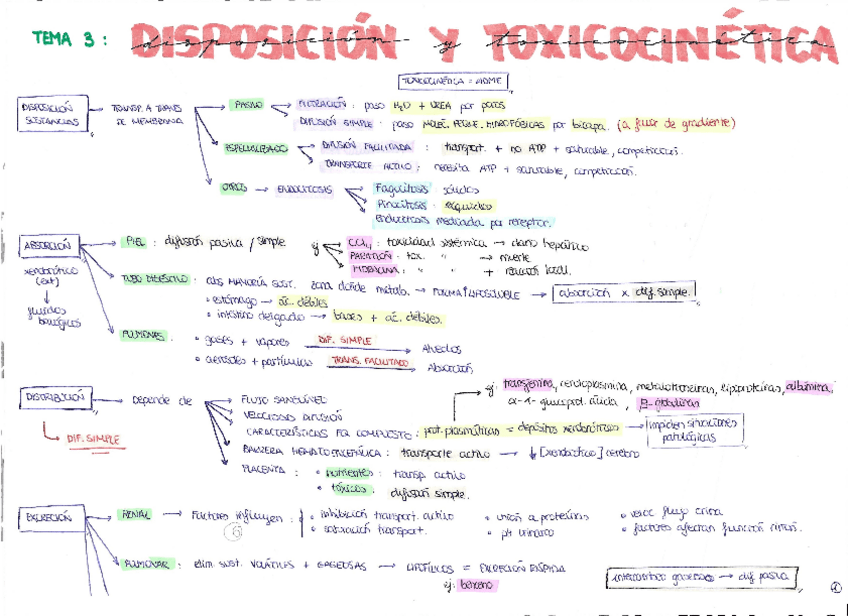 TEMA 3: DISPOSICIÓN Y TOXICOCINÉTICA
disposición y toxicocinética
TOXICOCINÉTICA = ADME
DISPOSICIÓN SUSTANCIAS → TRANSP. A TRAVÉS DE MEMBRANA
PASIVO
FILTRACIÓN: paso H2O + UREA por poros
DIFUSIÓN SIMPLE: paso MOLÉC. PEQUE. HIDROFÓBICAS por bicapa. (a favor de gradiente)
ESPECIALIZADO
DIFUSIÓN FACILITADA: transport. + no ATP + saturable, competición.
TRANSPORTE ACTIVO: necesita ATP + saturable, competición.
OTROS → ENDOCITOSIS
Fagocitosis: sólidos
Pinocitosis: líquidos
Endocitosis mediada por receptor.
ABSORCIÓN
xenobiótico (ext) ↓ fluidos biológicos
PIEL: difusión pasiva / simple
ej CCl4: toxicidad sistémica → daño hepático
PARATIÓN: tox. " → muerte
HIDRACINA: " " + reacción local.
TUBO DIGESTIVO: abs MAYORÍA SUST. zona donde metab. → FORMA LIPOSOLUBLE → absorción x dif. simple.
• estómago → ác. débiles
• intestino delgado → bases + ác. débiles.
PULMONAR:
• gases + vapores DIF. SIMPLE → Alveolos
• aerosoles + partículas TRANS. FACILITADO → Absorción
DISTRIBUCIÓN → Depende de
DIF. SIMPLE
FLUJO SANGUÍNEO
VELOCIDAD DIFUSIÓN
CARACTERÍSTICAS FQ COMPUESTO: prot. plasmáticas = depósitos xenobióticos → impiden situaciones patológicas
ej: transferrina, ceruloplasmina, metalotioneínas, lipoproteínas, albúmina, α-1-glucoprot. ácida, β-globulinas
BARRERA HEMATOENCEFÁLICA: transporte activo → ↓[xenobiótico] cerebro
PLACENTA: • nutrientes: transp activo
• tóxicos: difusión simple.
EXCRECIÓN
RENAL → Factores influyen:
• inhibición transport. activo
• saturación transport.
• unión a proteínas
• pH urinario
• veloc flujo orina
• factores afectan función renal.
PULMONAR: elim sust. VOLÁTILES + GASEOSAS → LIPOFÍLICOS = EXCRECIÓN RÁPIDA
ej: benceno
intercambio gaseoso → dif pasiva
1